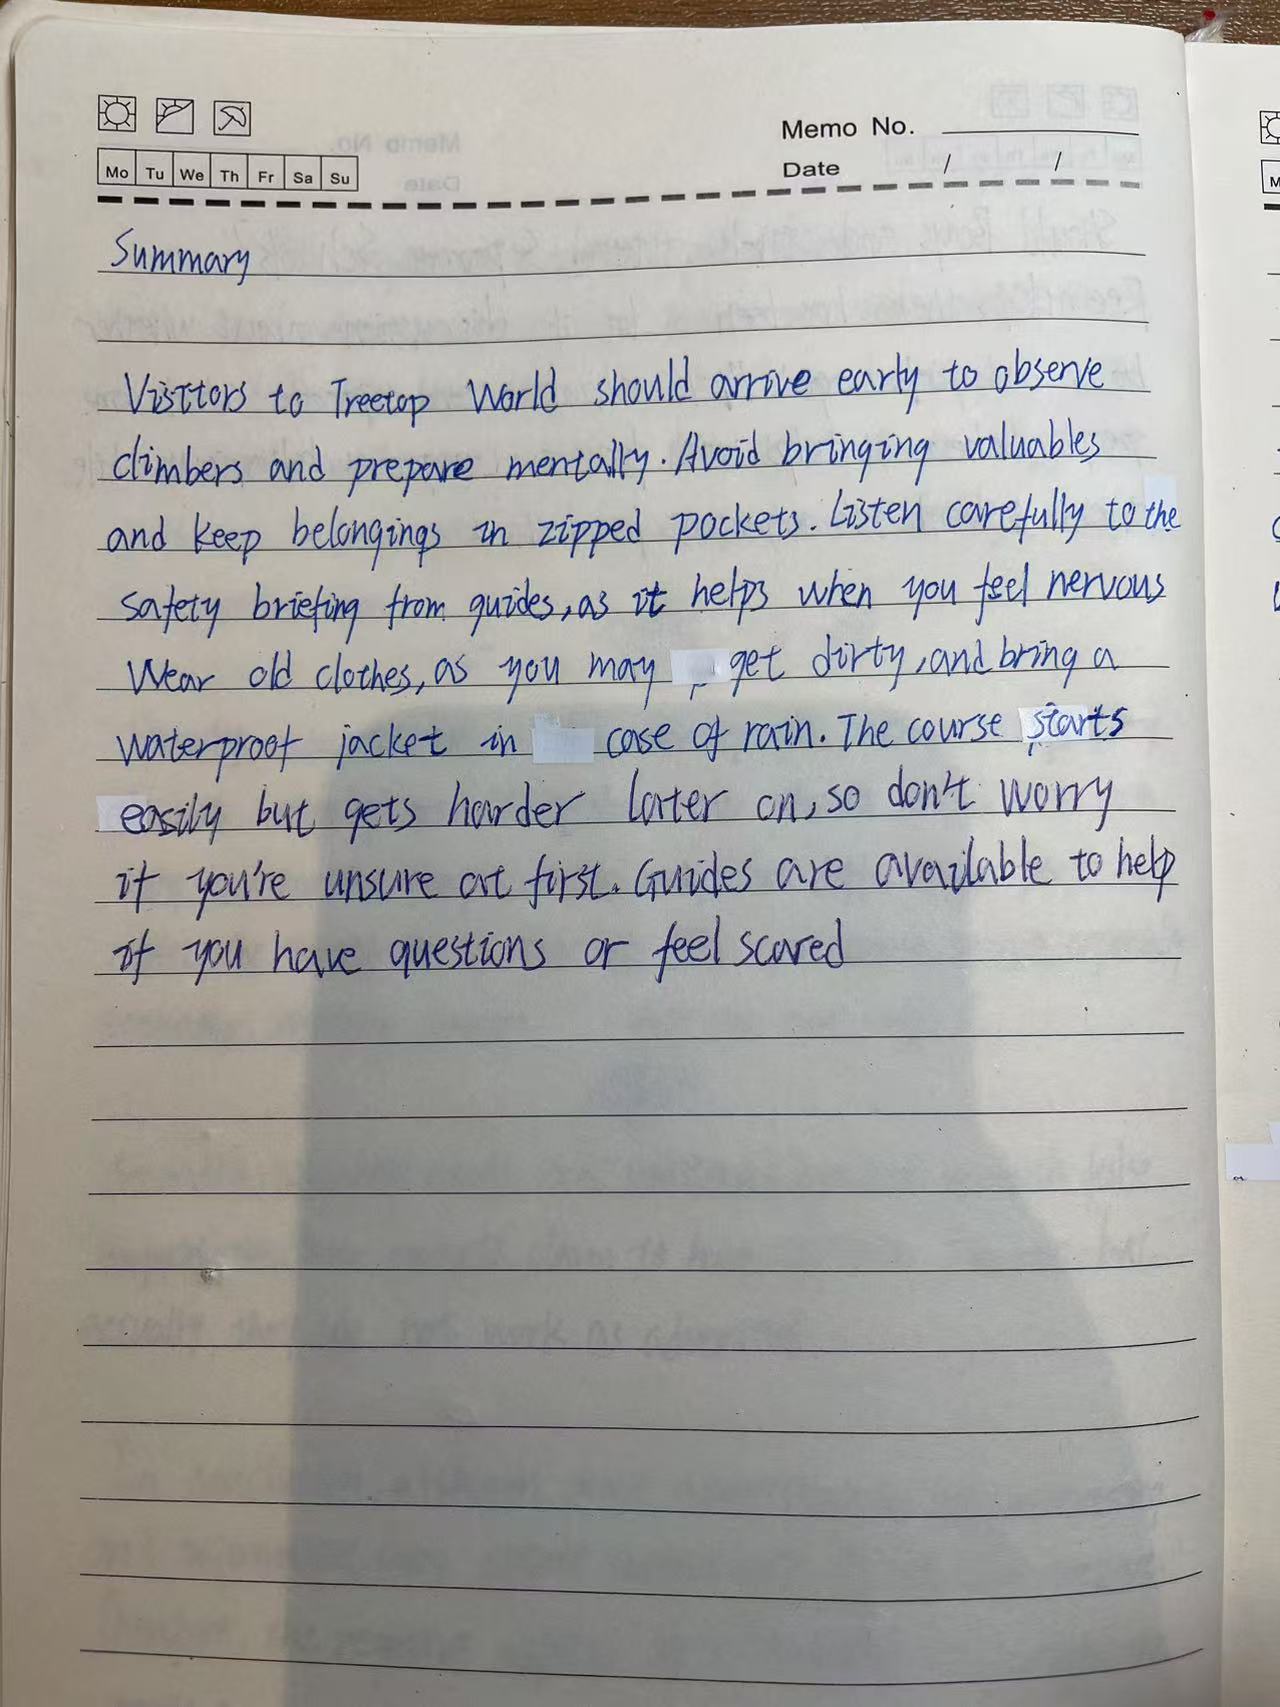 Memo No.
Date / /
Mo Tu We Th Fr Sa Su
Summary
Visitors to Treetop World should arrive early to observe
climbers and prepare mentally. Avoid bringing valuables
and keep belongings in zipped pockets. Listen carefully to the
safety briefing from guides, as it helps when you feel nervous
Wear old clothes, as you may get dirty, and bring a
waterproof jacket in case of rain. The course starts
easily but gets harder later on, so don't worry
if you're unsure at first. Guides are available to help
if you have questions or feel scared